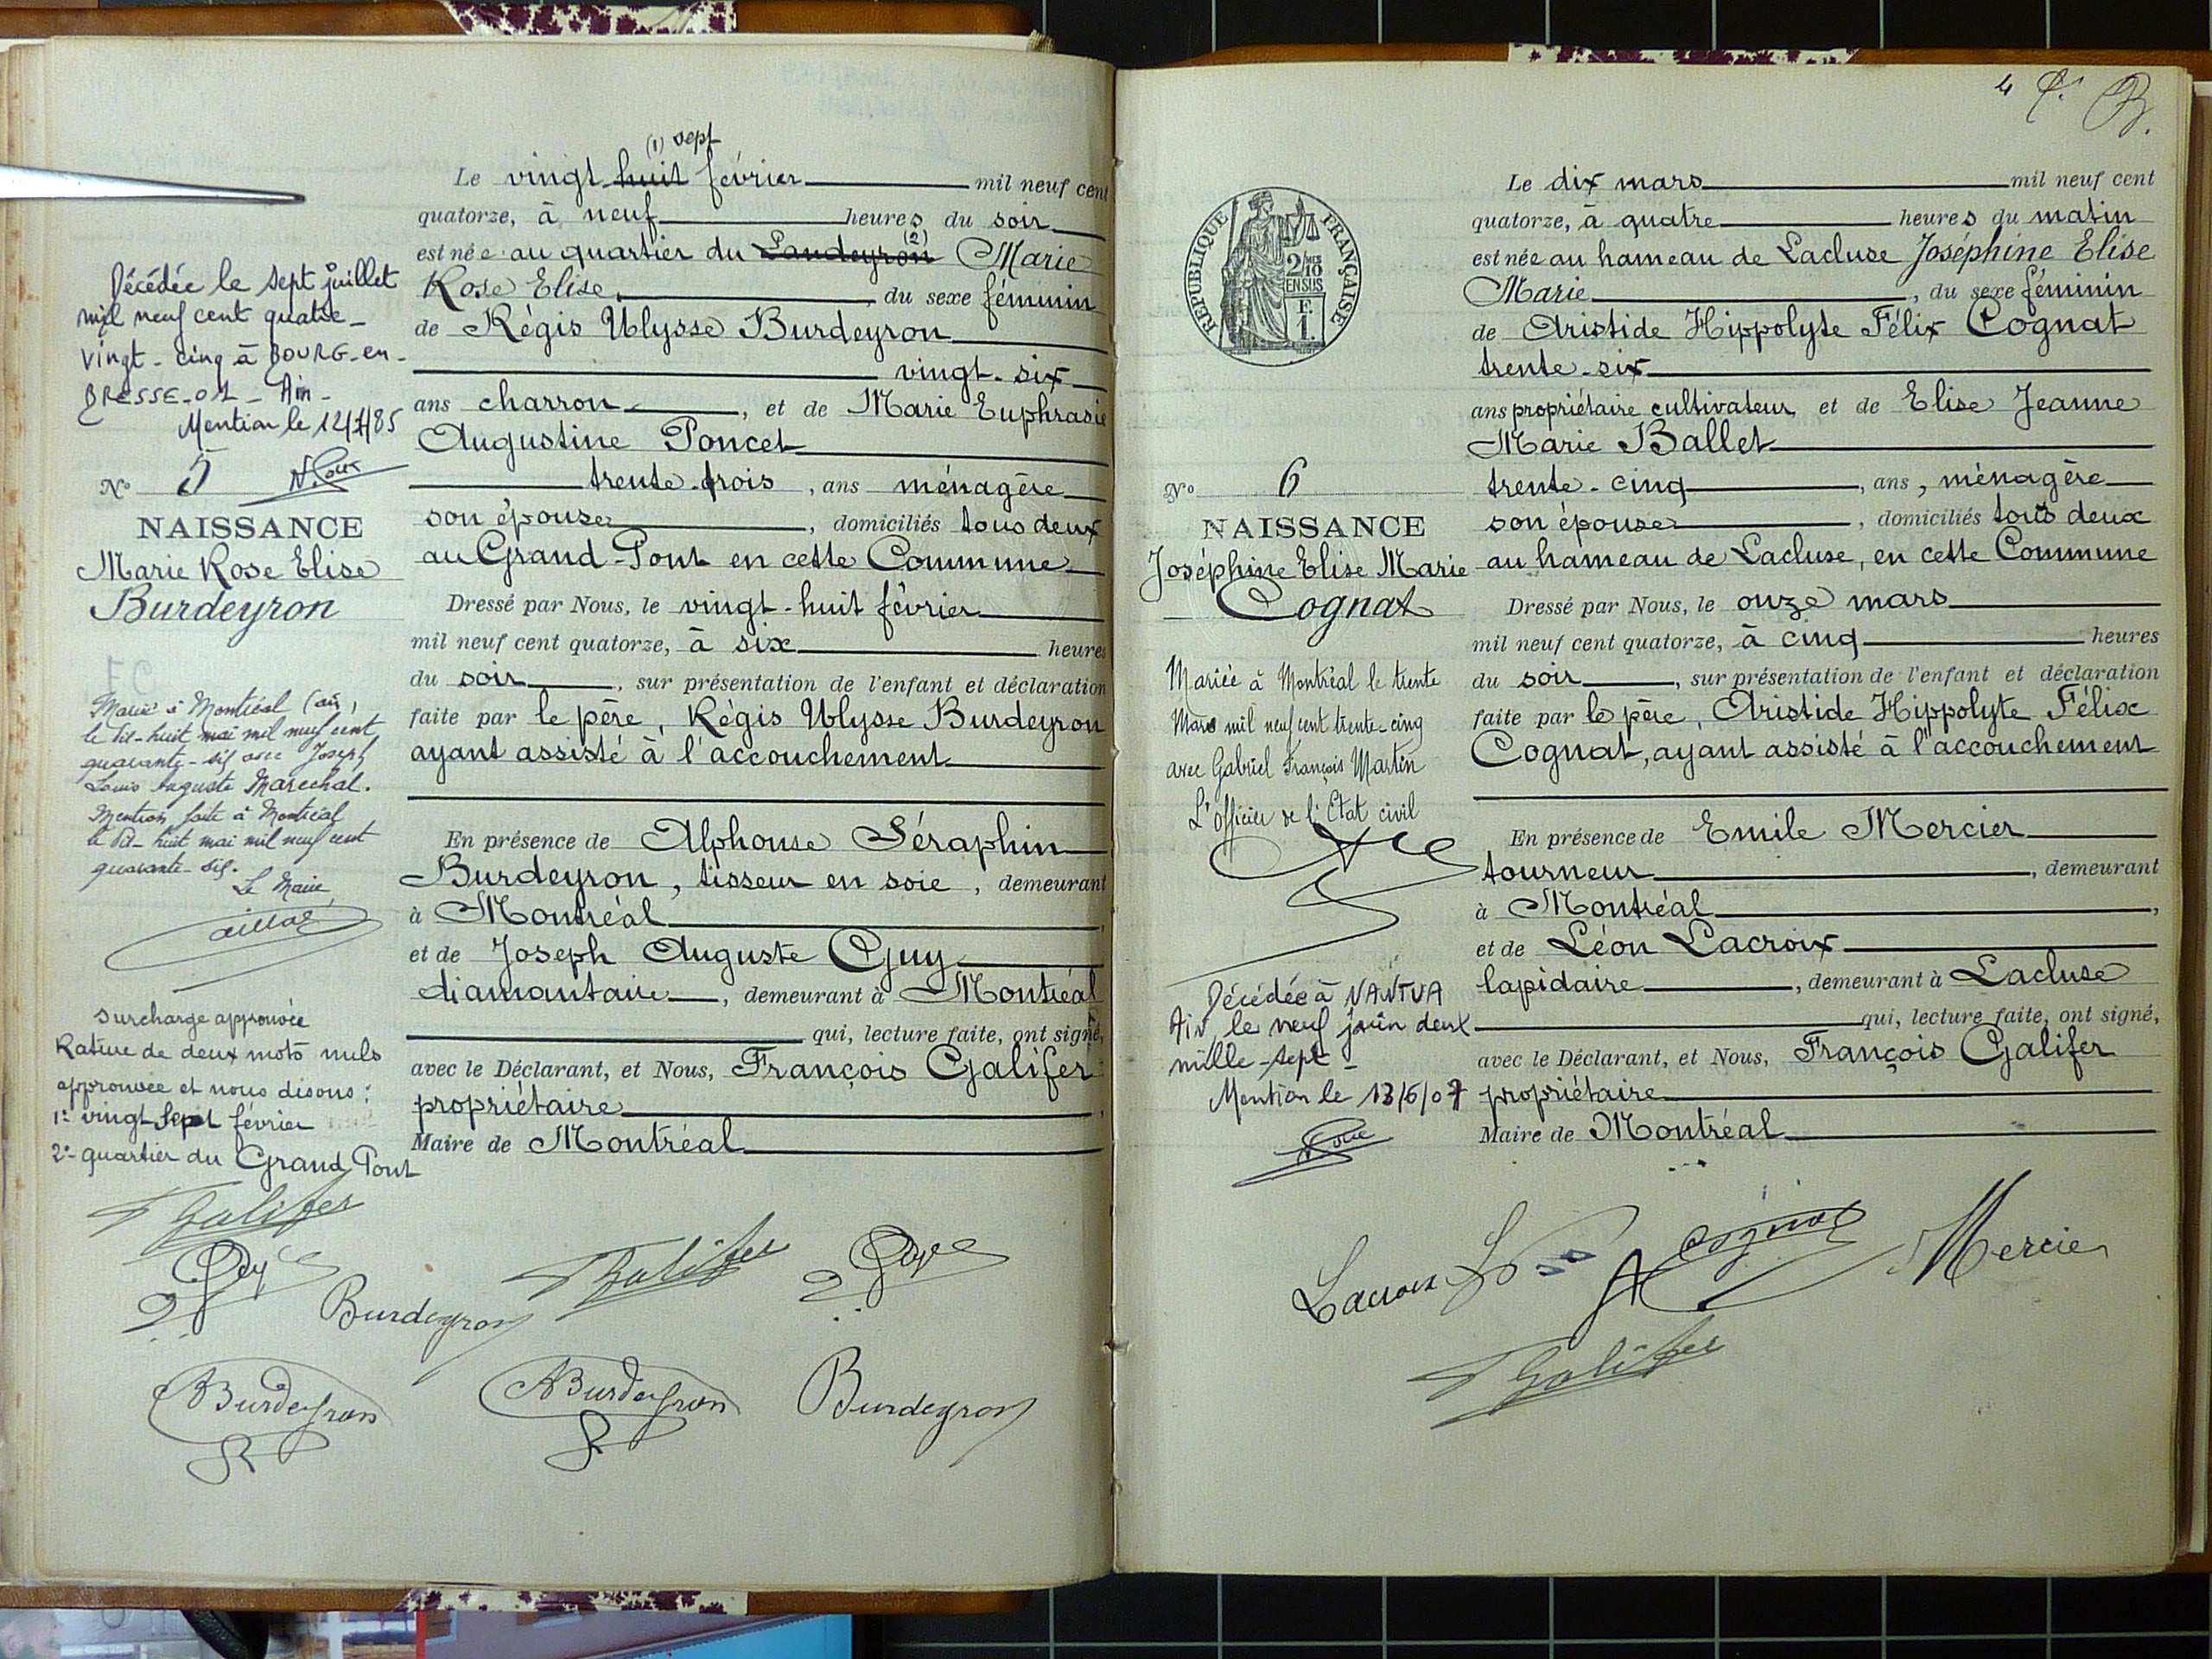 (1) sept
Le vingt-huit février mil neuf cent
quatorze, à neuf heures du soir
est née au quartier du Landeyron (2) Marie
Rose Elise, du sexe féminin
de Régis Ulysse Burdeyron
vingt-six
ans charron, et de Marie Euphrasie
Augustine Poncet
trente-trois, ans ménagère
son épouse, domiciliés tous deux
au Grand-Pont en cette Commune
Dressé par Nous, le vingt-huit février
mil neuf cent quatorze, à six heures
du soir, sur présentation de l'enfant et déclaration
faite par le père, Régis Ulysse Burdeyron
ayant assisté à l'accouchement
En présence de Alphonse Séraphin
Burdeyron, tisseur en soie, demeurant
à Montréal
et de Joseph Auguste Guy
diamantaire, demeurant à Montréal
qui, lecture faite, ont signé,
avec le Déclarant, et Nous, François Galifer
propriétaire,
Maire de Montréal
Décédée le sept juillet
mil neuf cent quatre-
vingt-cinq à BOURG-en-
BRESSE-01-Ain-
Mention le 12/7/85
No 5
NAISSANCE
Marie Rose Elise
Burdeyron
Marié à Montréal (Ain)
le dix-huit mai mil neuf cent
quarante-six avec Joseph
Louis Auguste Maréchal.
Mention faite à Montréal
le dix-huit mai mil neuf cent
quarante-six.
Le Maire
surcharge approuvée
Rature de deux mots nuls
approuvée et nous disons:
1º vingt sept février
2º quartier du Grand Pont
Galifer
Burdeyron
Galifer
Burdeyron
Burdeyron
Burdeyron
4
REPUBLIQUE FRANÇAISE
2/10
EN SUS
F.
1.
Le dix mars mil neuf cent
quatorze, à quatre heures du matin
est née au hameau de Lacluse Joséphine Elise
Marie, du sexe féminin
de Aristide Hippolyte Félix Cognat
trente-six
ans propriétaire cultivateur, et de Elise Jeanne
Marie Ballet
trente-cinq, ans, ménagère
son épouse, domiciliés tous deux
au hameau de Lacluse, en cette Commune
Dressé par Nous, le onze mars
mil neuf cent quatorze, à cinq heures
du soir, sur présentation de l'enfant et déclaration
faite par le père, Aristide Hippolyte Félix
Cognat, ayant assisté à l'accouchement
En présence de Emile Mercier
tourneur, demeurant
à Montréal,
et de Léon Lacroix
lapidaire, demeurant à Lacluse
qui, lecture faite, ont signé,
avec le Déclarant, et Nous, François Galifer
propriétaire
Maire de Montréal
No 6
NAISSANCE
Joséphine Elise Marie
Cognat
Mariée à Montréal le trente
Mars mil neuf cent trente-cinq
avec Gabriel François Martin
L'Officier de l'Etat civil
Décédée à NANTUA
Ain, le neuf juin deux
mille-sept-
Mention le 13/6/07
Lacroix
Cognat
Mercier
Galifer